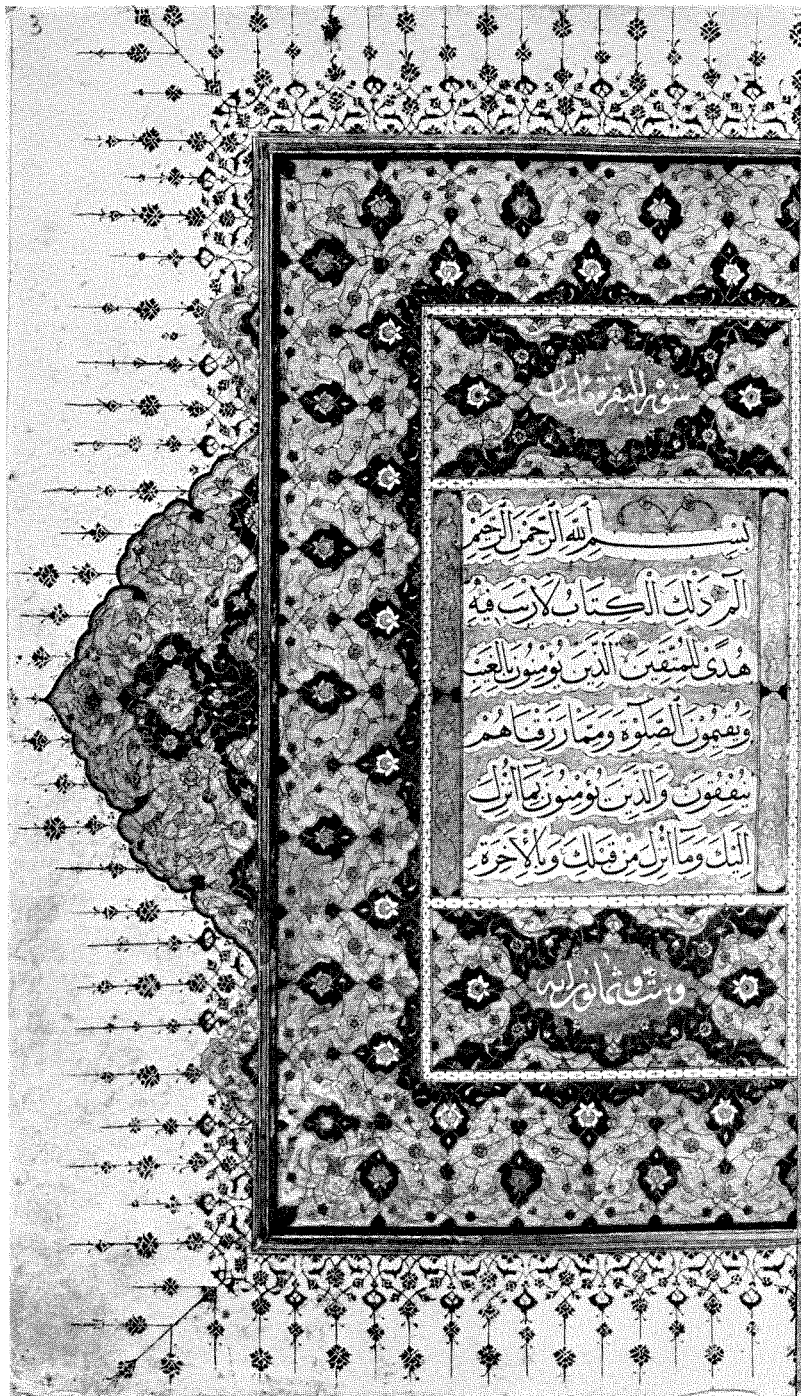 3
سورة البقرة مايتان
بِسْمِ اللّٰهِ الرَّحْمٰنِ الرَّحِيْمِ
الٓمٓ ذٰلِكَ الْكِتَابُ لَارَيْبَ فِيْهِ
هُدًى لِلْمُتَّقِيْنَ الَّذِيْنَ يُؤْمِنُوْنَ بِالْغَيْبِ
وَيُقِيْمُوْنَ الصَّلٰوةَ وَمِمَّا رَزَقْنَاهُمْ
يُنْفِقُوْنَ وَالَّذِيْنَ يُؤْمِنُوْنَ بِمَا اُنْزِلَ
اِلَيْكَ وَمَا اُنْزِلَ مِنْ قَبْلِكَ وَبِالْاٰخِرَةِ
وستّ وثمانون اية